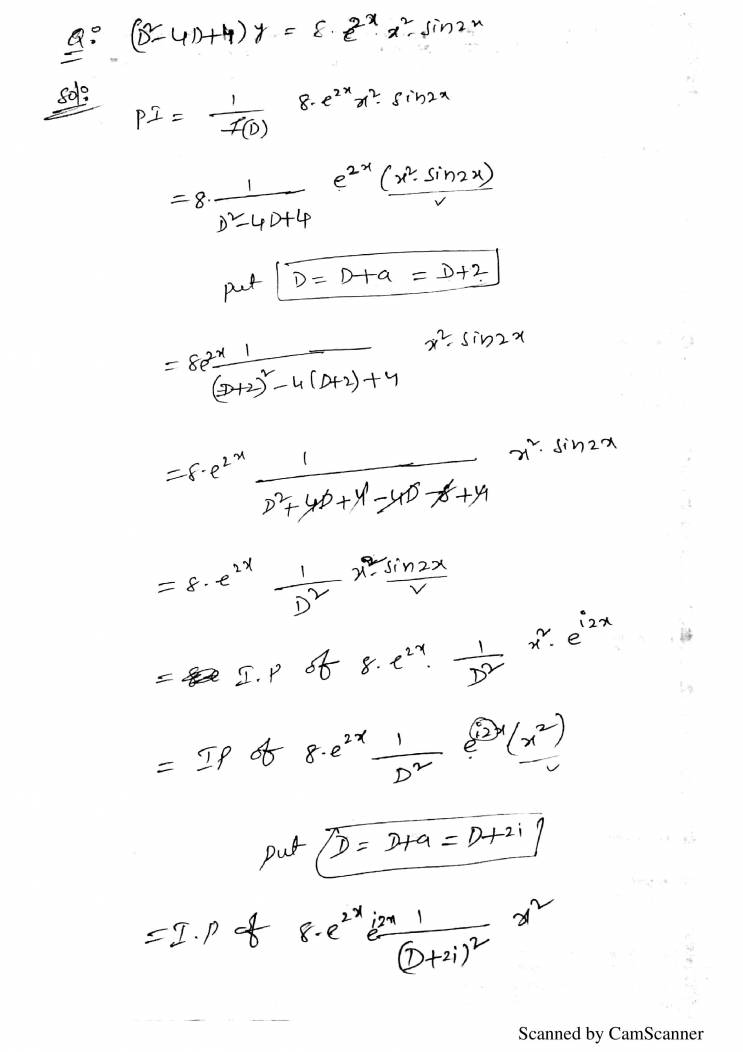 Q: (D²-4D+4) y = 8. e^2x. x². sin2x
Sol:
PI = 1/f(D) 8. e^2x x². sin2x
= 8. 1/(D²-4D+4) e^2x (x². sin2x)
put D = D+a = D+2
= 8e^2x 1/((D+2)²-4(D+2)+4) x². sin2x
= 8. e^2x 1/(D²+4D+4-4D-8+4) x². sin2x
= 8. e^2x 1/D² x². sin2x
= I.P of 8. e^2x. 1/D² x². e^i2x
= IP of 8. e^2x 1/D² e^i2x (x²)
put D = D+a = D+2i
= I.P of 8. e^2x e^i2x 1/(D+2i)² x²
Scanned by CamScanner